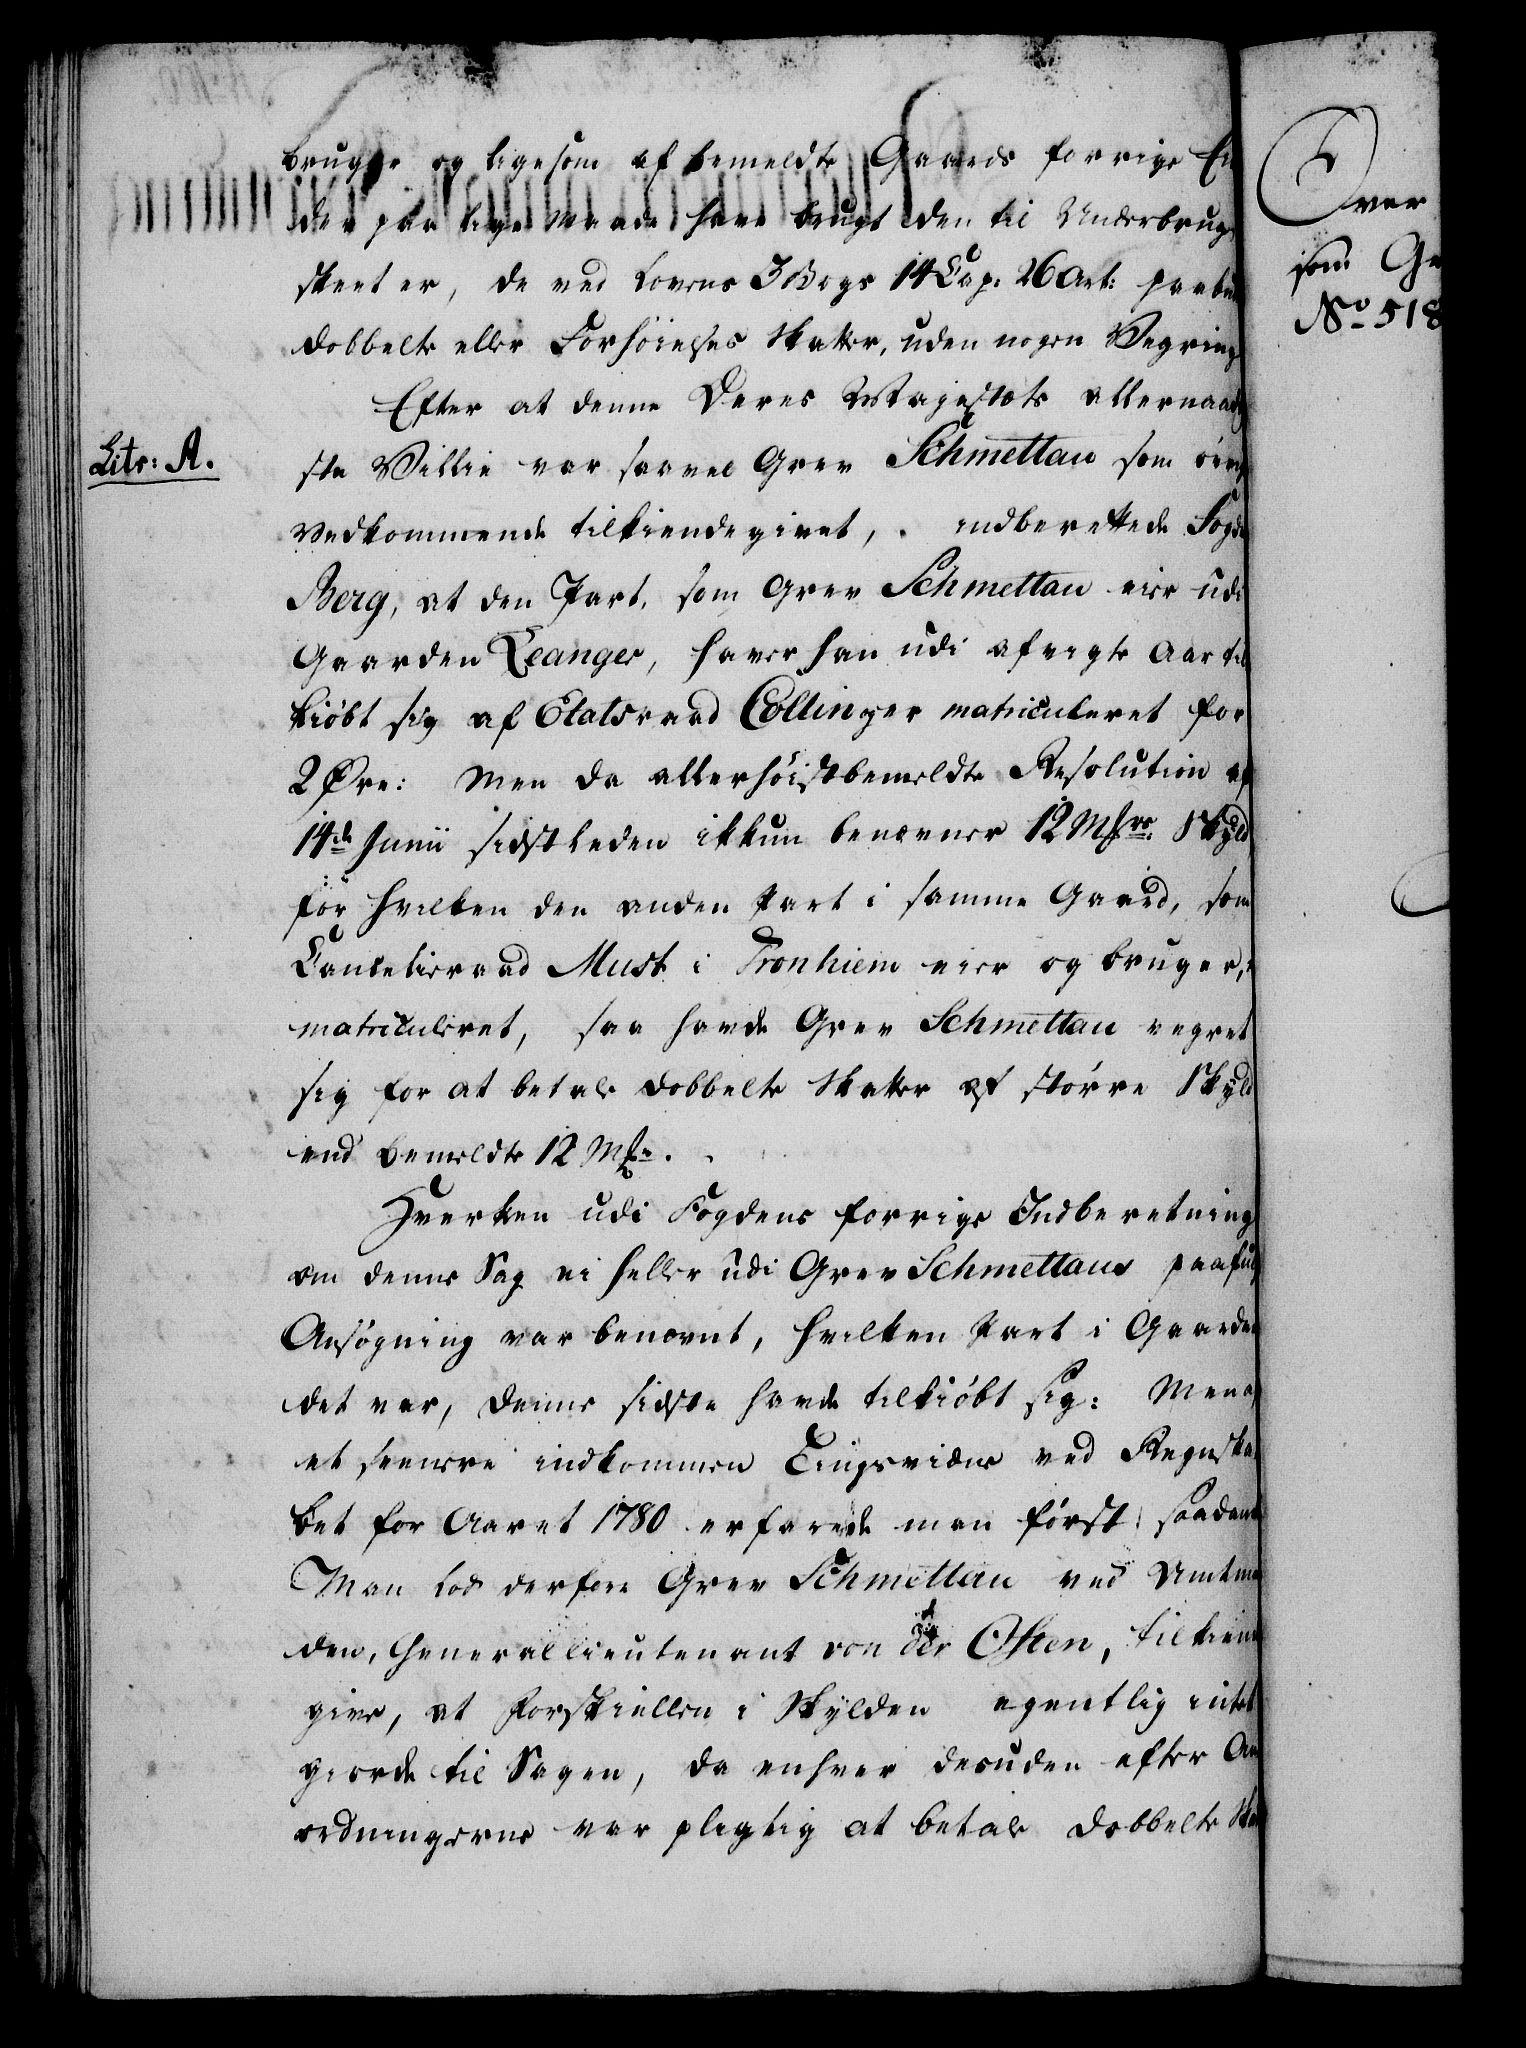 bruger og ligesom af bemeldte Gaards forrige Ei
der paa lige Maade have brugt den til Underbrug
skeet er, de ved Lovens 3 Bogs 14 Cap. 26 Art: paabu
dobbelte eller Forhöielses Skatter, uden nogen Vegring
Efter at denne Deres Majestæts allernaadig
Litr: A.
ste Villie var saavel Grev Schmettau som övrige
Vedkommende tilkiendegivet, indberettede Foged
Berg, at den Part, som Grev Schmettau eier udi
Gaarden Leanger, haver han udi afvigte Aar til
kiöbt sig af Etatsraad Collin og er matriculeret for
2 Øre: Men da allerhöistbemeldte Resolution af
14de Junii sidstleden ikkun benævner 12 Mkrs Skyld
for hvilken den anden Part i samme Gaard, som
Cancelieraad Must i Tronhiem eier og bruger, er
matriculeret, saa havde Grev Schmettau vegret
sig for at betale dobbelte Skatter af större Skyld
end bemeldte 12 Mkr.
Hverken udi Fogdens forrige Indberetning
om denne Sag ei heller udi Grev Schmettaus paafulg
Ansögning var benævnt, hvilken Part i Gaarden
det var, denne sidste havde tilkiöbt sig: Men af
et seenere indkommen Tingsvidne ved Regnska
bet for Aaret 1780 erfarede man först saadant
Man lod derfore Grev Schmettau ved Amtman
den, Generallieutenant von der Osten, tilkiende
give, at Forskiellen i Skylden egentlig intet
giorde til Sagen, da enhver desuden efter An
ordningerne var pligtig at betale dobbelte Skat
Over
som Gr
No 518